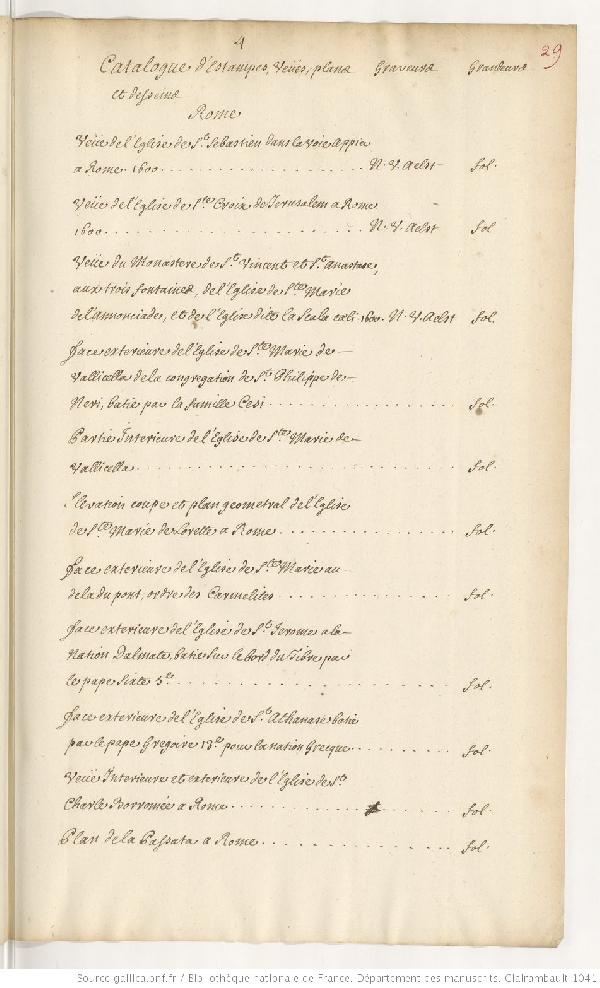 4
29
Catalogue d'Estampes, Veües, plans Graveurs Grandeurs
et desseins
Rome
Veüe de l'Eglise de St. Sebastien dans la voie Appia
a Rome 1600 N. V. Aelst fol.
Veüe de l'Eglise de Ste. Croix de Jerusalem a Rome
1600 N. V. Aelst fol
Veüe du Monastere de St. Vincent et St. Anastase,
aux trois fontaines, de l'Eglise de Ste. Marie
de l'annonciade, et de l'Eglise dite la Scala cœli 1600. N. V. Aelst fol.
face exterieure de l'Eglise de Ste. Marie de
Vallicella de la congregation de St. Philippe de
Neri, batie par la famille Cesi fol.
Partie Interieure de l'Eglise de Ste. Marie de
Vallicella fol.
Elevation coupe et plan geometral de l'Eglise
de Ste. Marie de Lorette a Rome fol.
face exterieure de l'Eglise de Ste. Marie au
dela du pont, ordre des Carmelites fol.
face exterieure de l'Eglise de St. Jerome a la
Nation Dalmate, batie sur le bord du Tibre par
le pape Sixte 5e. fol.
face exterieure de l'Eglise de St. Athanase batie
par le pape Gregoire 13e. pour la nation Grecque fol.
Veüe Interieure et exterieure de l'Eglise de St.
Charle Borromée a Rome fol.
Plan de la Passata a Rome fol.
Source gallica.bnf.fr / Bibliothèque nationale de France. Département des manuscrits. Clairambault 1041